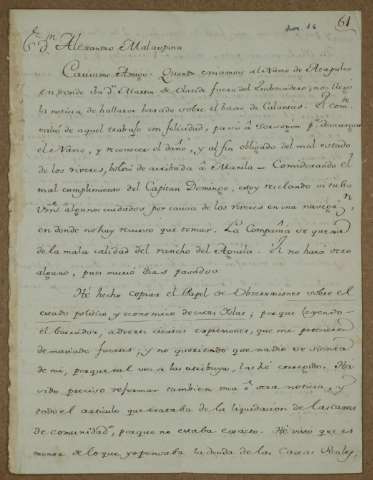 61
Alexandro Malaspina
Carisimo Amigo. Quando
la noticia de hallarse barado sobre el baxo de Calantas. El
de aquel trabajo con felicidad, pasó á
el Navio, y reconocer el daño, y al fin obligado del mal estado
de los viveres, bolvió de arribada á Manila. Considerando el
mal cumplimiento del Capitan Domingo, estoy recelando si tubo
algunos cuidados por causa de los viveres en una
en donde no hay recurso que tomar. La Compañia se
de la mala calidad del rancho del Aguila. El no hará otro
alguno, pues murió dias pasados
Hé hecho copiar el Papel de Observaciones sobre el
estado politico, y economico de estas Yslas; porque leyendo
el borrador, advertí ciertas expresiones, que me parecieron
demasiado fuertes, y no queriendo que nadie se sienta
de mi, porque tal vez se las atribuya, las hé corregido. Ha
sido preciso reformar tambien una ú otra noticia, y
todo el articulo que trataba de la liquidacion de las caxas
de comunidad, porque no estaba exacto. Hé visto que es
menor de lo que yo pensaba la deuda de las Caxas Reales,